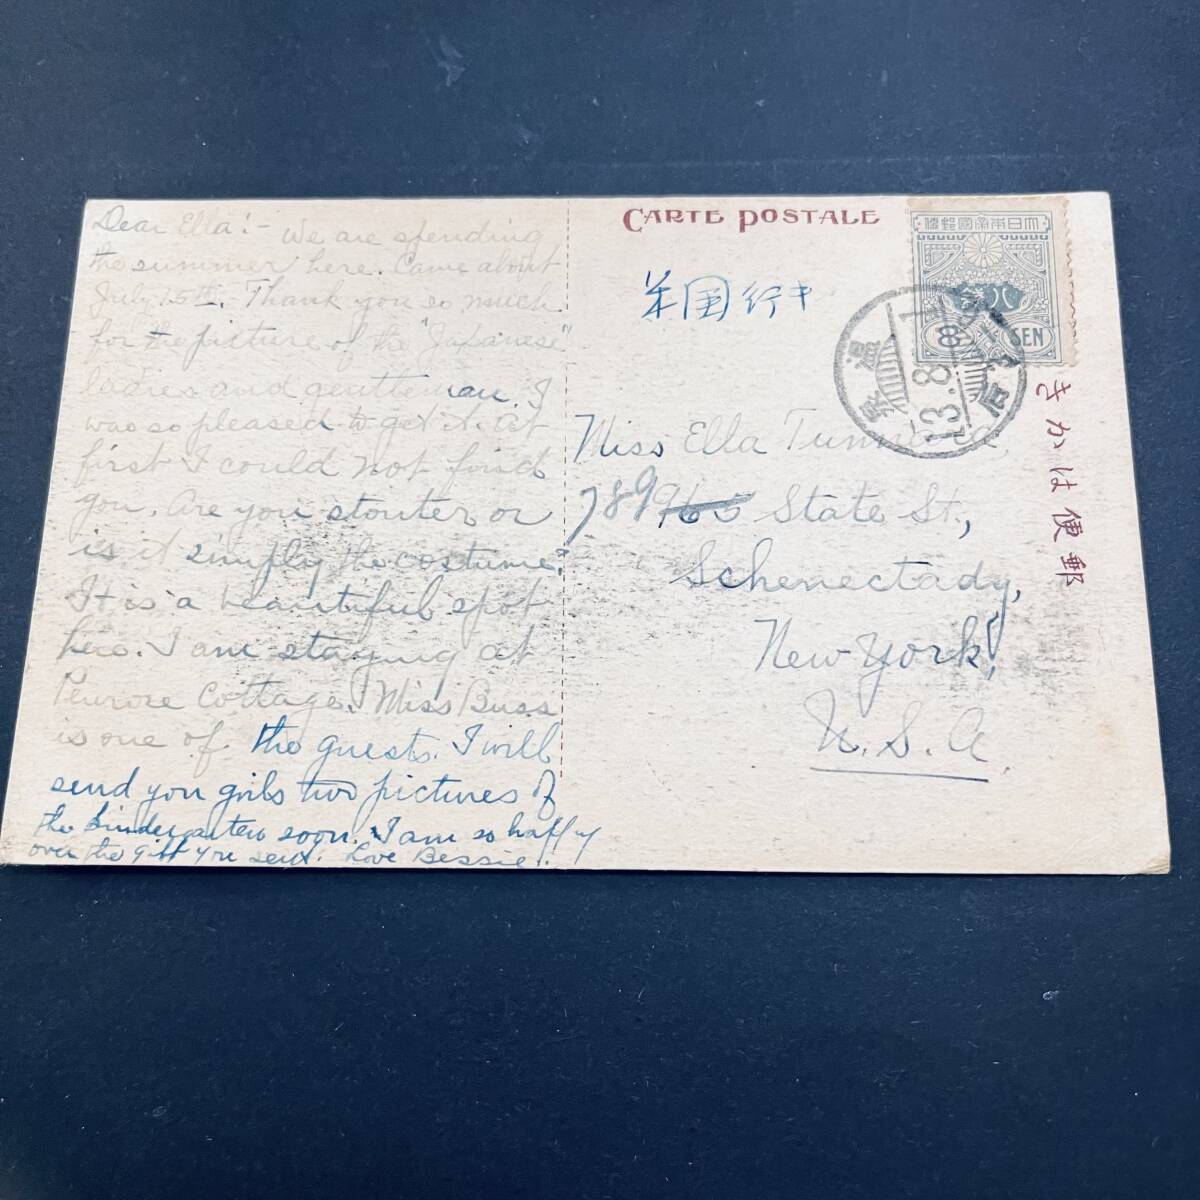 Dear Ella:- We are spending
the summer here. Came about
July 15th. Thank you so much
for the picture of the "Japanese"
ladies and gentleman. I
was so pleased to get it. At
first I could not find
you. Are you stouter or
is it simply the costume?
It is a beautiful spot
here. I am staying at
Penrose Cottage. Miss Buss
is one of the guests. I will
send you girls two pictures of
the kindergarten soon. I am so happy
over the gift you send. Love Bessie.
CARTE POSTALE
米国行キ
大日本帝國郵便
八 SEN
溫泉
13.8.8
Miss Ella
789 State St.,
Schenectady,
New York,
U.S.A.
郵便はかき